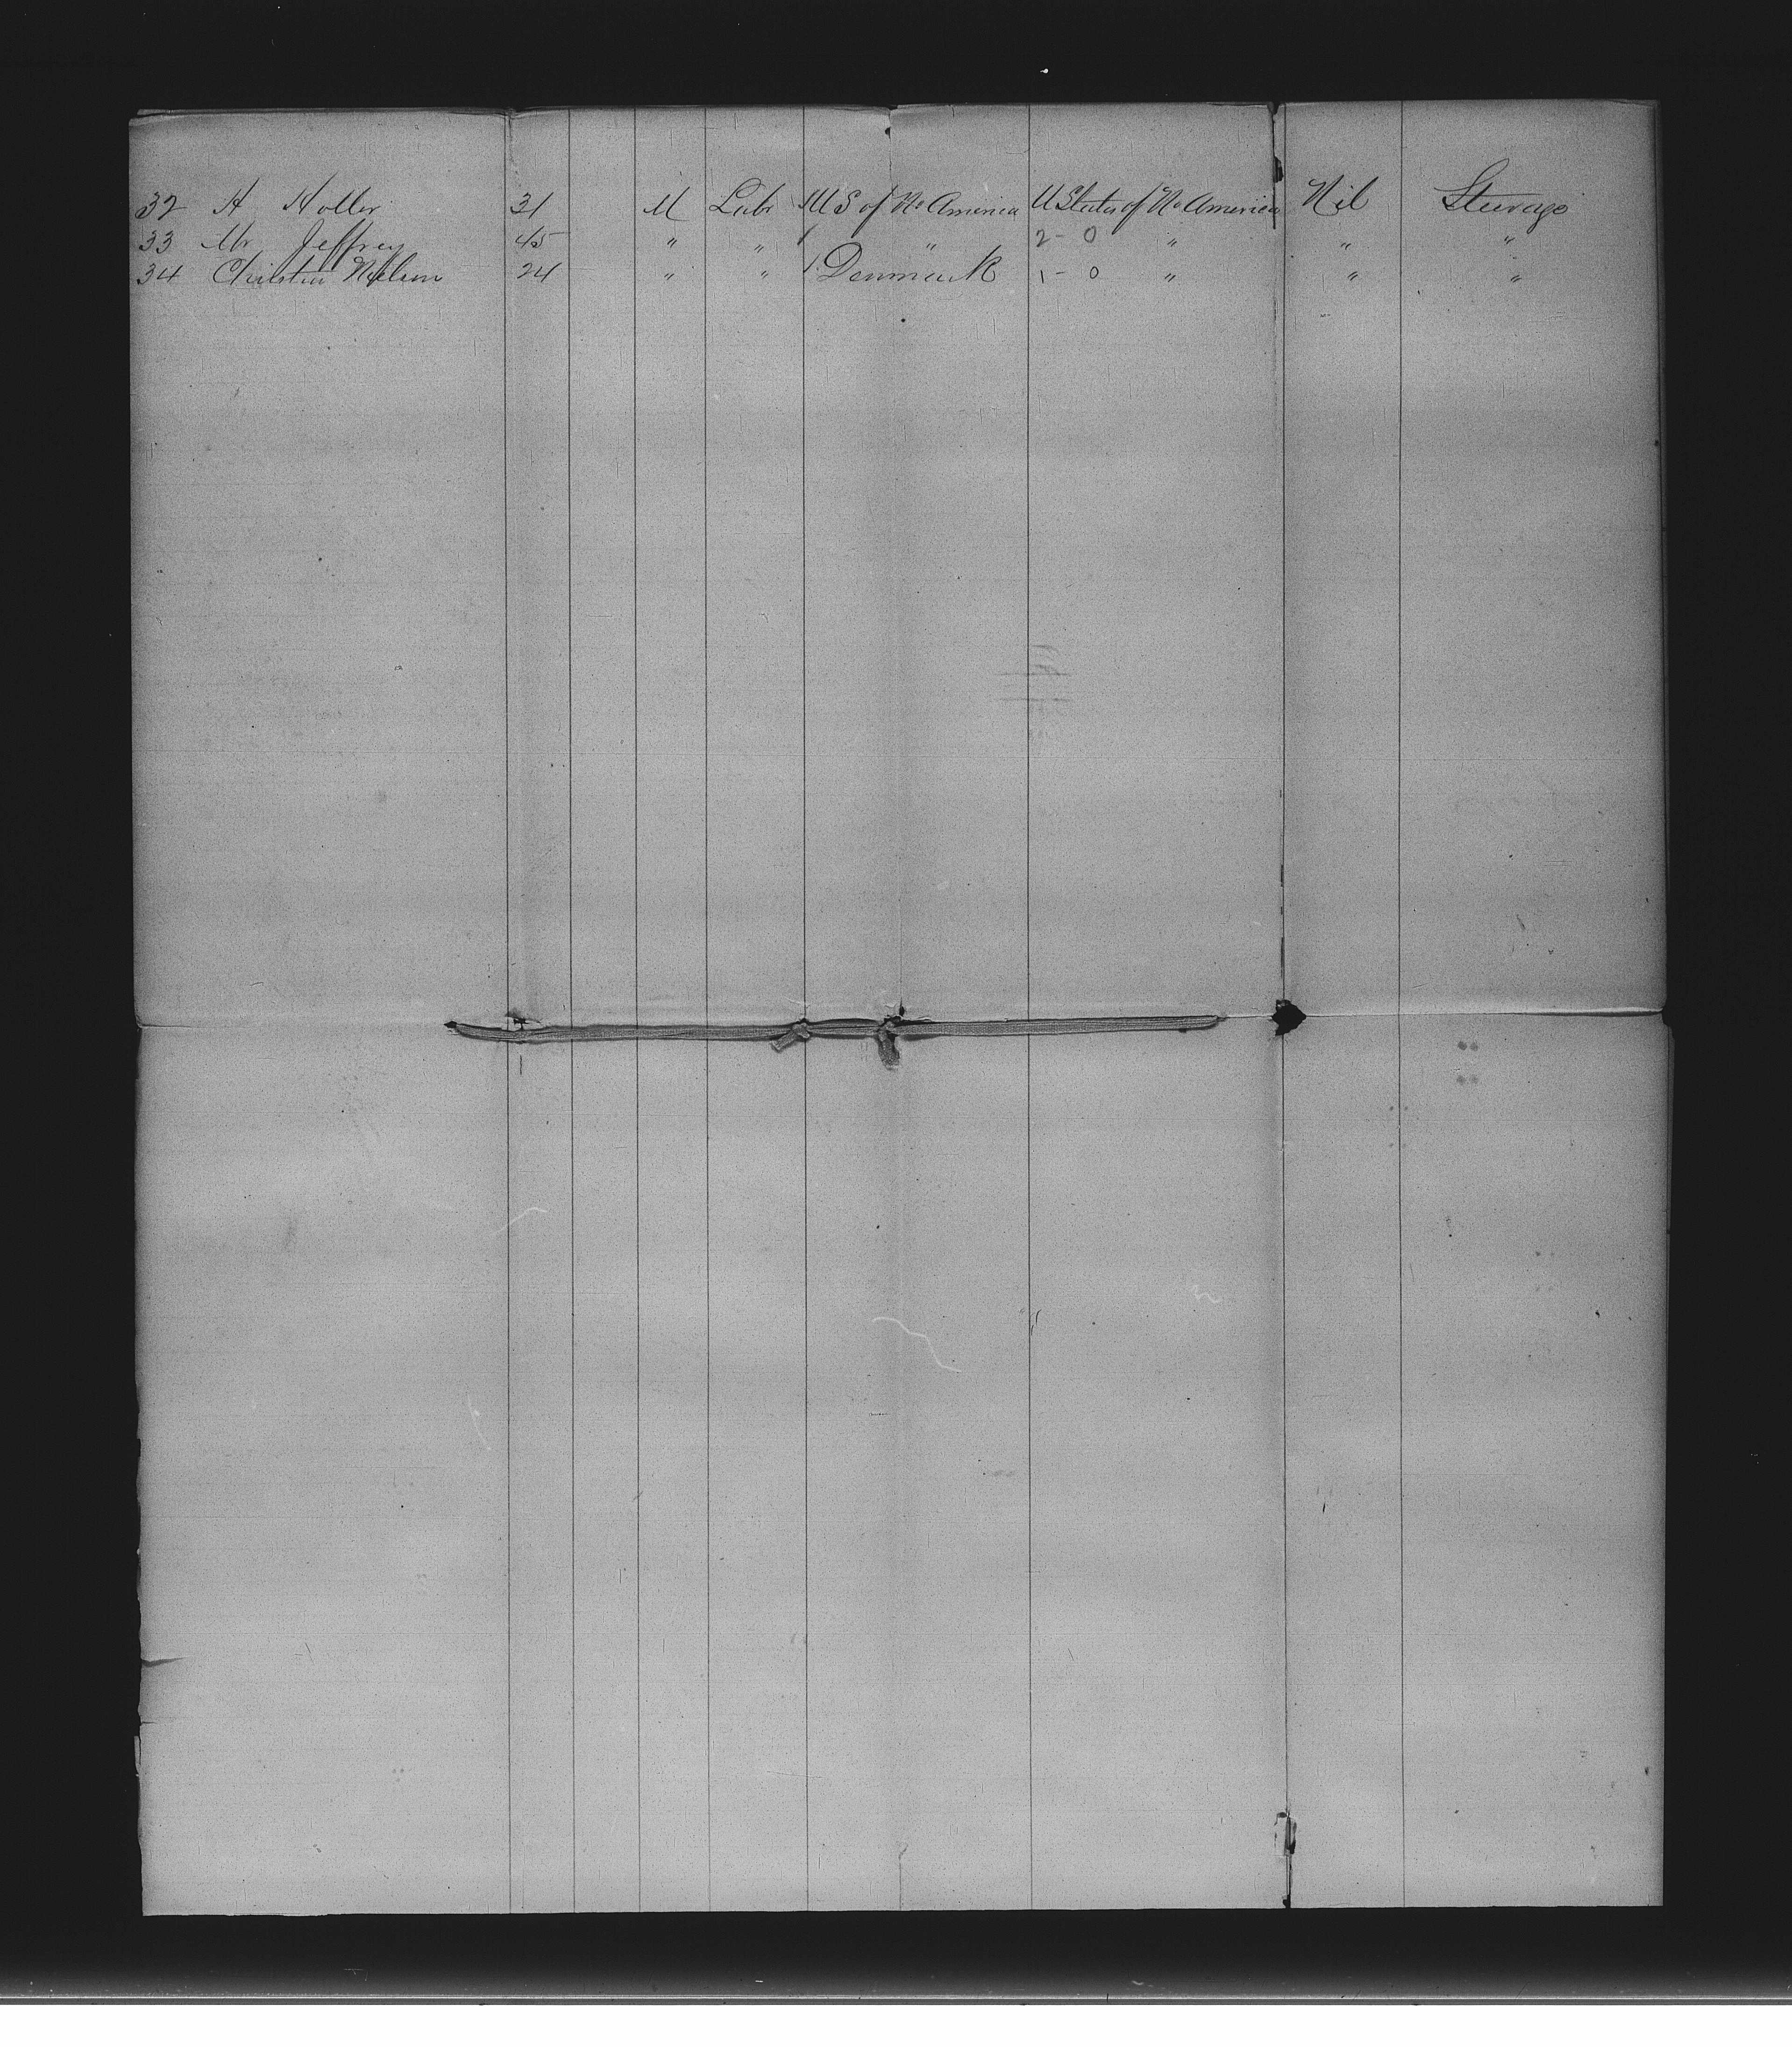 32 H Holler 31 M Labr 1 U S of No America U States of No America Nil Steerage
33 Mr Jeffrey 45 " " 1 " 2 - 0 " " "
34 Christen Nielsen 24 " " 1 Denmark 1 - 0 " " "